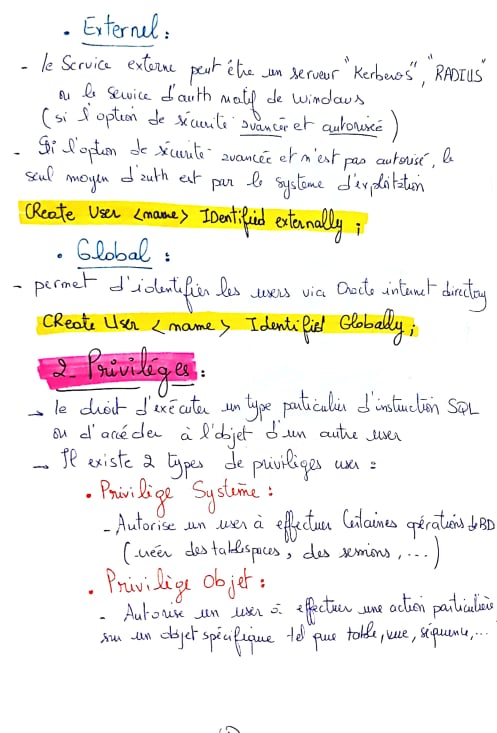 • Externel :
- le Service externe peut être un serveur "Kerberos", "RADIUS"
ou le service d'auth natif de windows
(si l'option de sécurité avancée et autorisée)
- Si l'option de sécurité avancée et n'est pas autorisé, le
seul moyen d'auth est par le système d'exploitation
CReate User <name> IDentified externally ;
• Global :
- permet d'identifier les users via Oracle internet directory
CReate User <name> Identified Globally ;
2- Privilèges :
→ le droit d'exécuter un type particulier d'instruction SQL
ou d'accéder à l'objet d'un autre user
→ Il existe 2 types de privilèges user :
• Privilège Système :
- Autorise un user à effectuer Certaines opérations de BD
(créer des tablespaces, des sessions, ...)
• Privilège Objet :
- Autorise un user à effectuer une action particulière
sur un objet spécifique tel que table, vue, séquence, ...